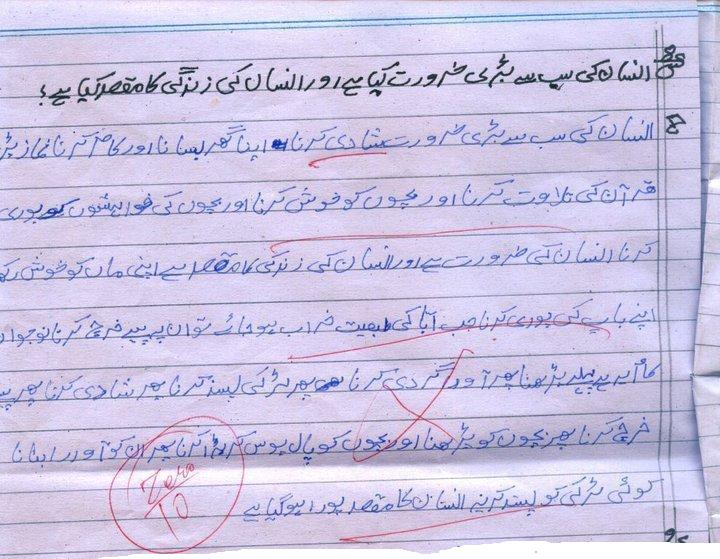 انسان کی سب سے بڑی ضرورت کیا ہے اور انسان کی زندگی کا مقصد کیا ہے؟
انسان کی سب سے بڑی ضرورت شادی کرنا اپنا گھر بسانا اور کام کرنا نماز پڑ
قرآن کی تلاوت کرنا اور بچوں کو خوش کرنا اور بچوں کی خواہشوں کو پوری
کرنا انسان کی ضرورت ہے اور انسان کی زندگی کا مقصد ہے اپنی ماں کو خوش رکھ
اپنے باپ کی پوری کرنا جب آبا کی طبعیت خراب ہو جائے تو ان پر پیسے خرچ کرنا نوجوان
کا پہلے پڑھنا پھر آوارگردی کرنا پھر لڑکی پسند کرنا پھر شادی کرنا پھر پیسے
خرچ کرنا پھر بچوں کو پڑھنا اور بچوں کو پال پوس کر بڑا کرنا پھر ان کو آوارا بنانا
کوئی لڑکی کو پسند کرنے انسان کا مقصد پورا ہو گیا ہے
Zero
10